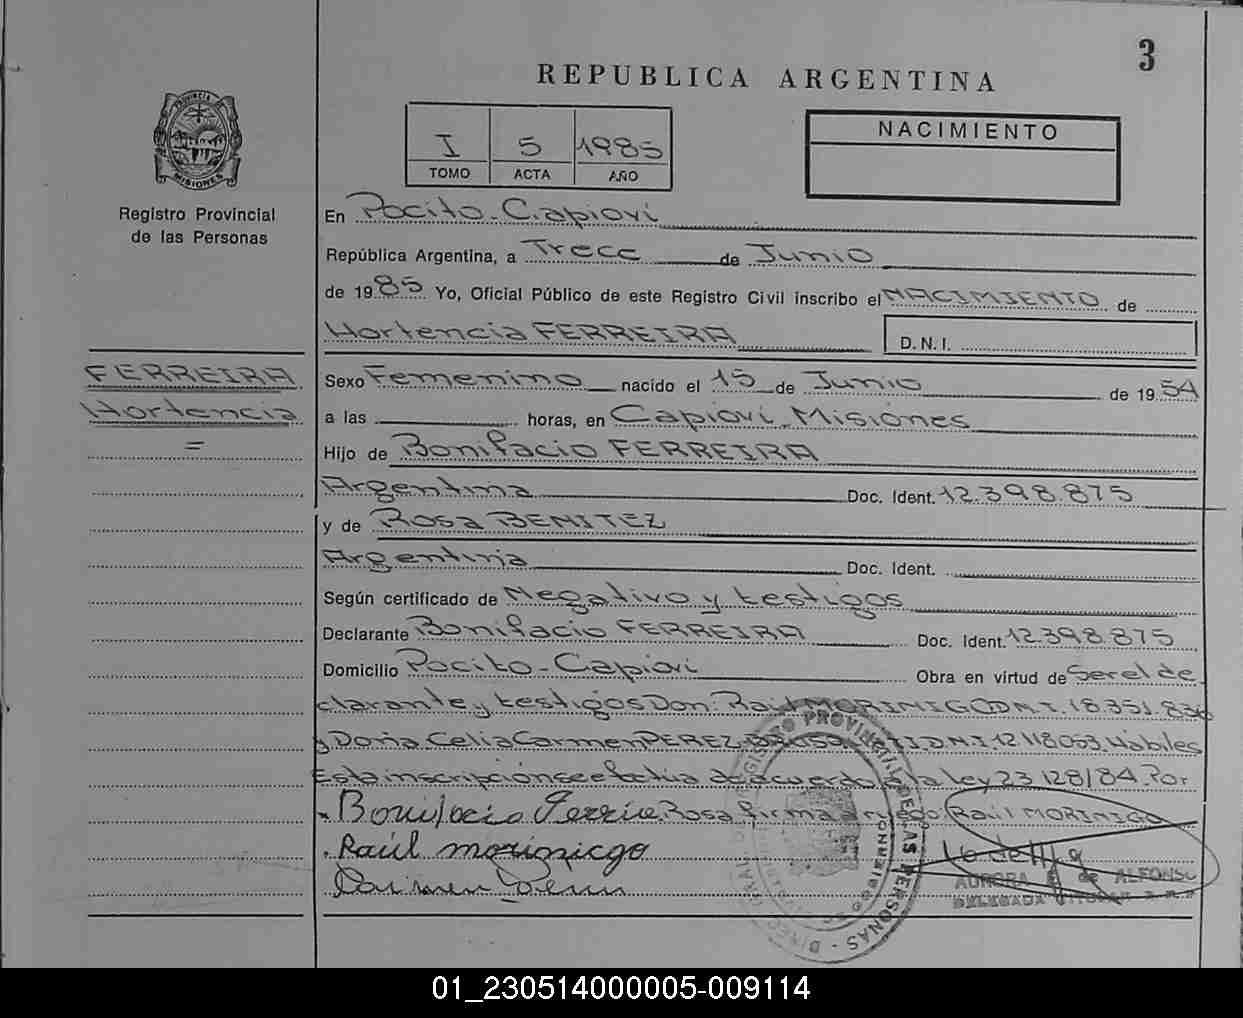 3
REPUBLICA ARGENTINA
PROVINCIA
MISIONES
Registro Provincial
de las Personas
I 5 1985
TOMO ACTA AÑO
NACIMIENTO
En Pocito-Capiovi
República Argentina, a Trece de Junio
de 1985 Yo, Oficial Público de este Registro Civil inscribo el NACIMIENTO de
Hortencia FERREIRA D.N.I.
FERREIRA
Hortencia
=
Sexo Femenino nacido el 15 de Junio de 1954
a las horas, en Capiovi-Misiones
Hijo de Bonifacio FERREIRA
Argentina Doc. Ident. 12.398.875
y de Rosa BENITEZ
Argentina Doc. Ident.
Según certificado de Negativo y testigos
Declarante Bonifacio FERREIRA Doc. Ident. 12.398.875
Domicilio Pocito-Capiovi Obra en virtud de Ser el de
clarante y testigos Don: Raúl MORINIGO D.N.I. 18.351.836
y Doña Celia Carmen PEREZ D.N.I. 12.118.053 Hábiles
Esta inscripción se efectúa de acuerdo a la Ley 23.128/84. Por
Bonifacio Ferrira Rosa firma a ruego: Raúl MORINIGO
Raúl morinicgo
Carmen
AURORA de ALFONSO
DELEGADA TITULAR
REGISTRO PROVINCIAL DE LAS PERSONAS
01_230514000005-009114